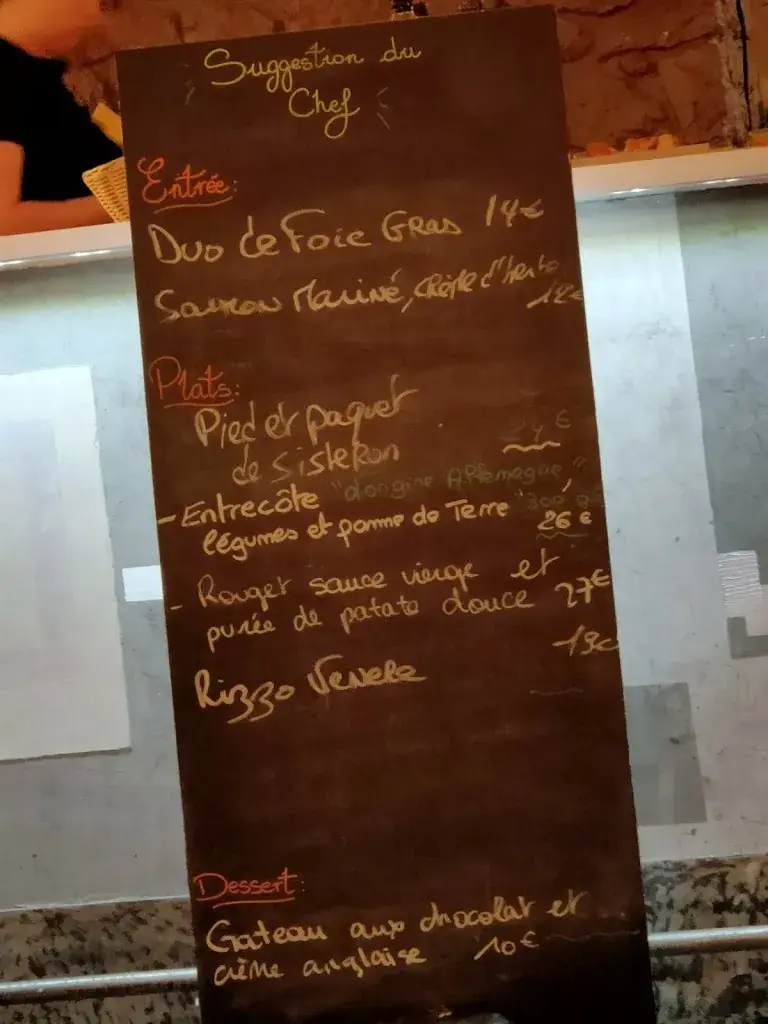 Suggestion du
Chef
Entrée:
Duo de Foie Gras 14€
Saumon Mariné, crème d'herbe
12€
Plats:
Pied et paquet
de Sisteron
- Entrecôte "d'origine Allemagne"
légumes et pomme de Terre
26€
- Rouget sauce vierge et
purée de patate douce 27€
19€
Rizzo Venere
Dessert:
Gateau aux chocolat et
crème anglaise 10€